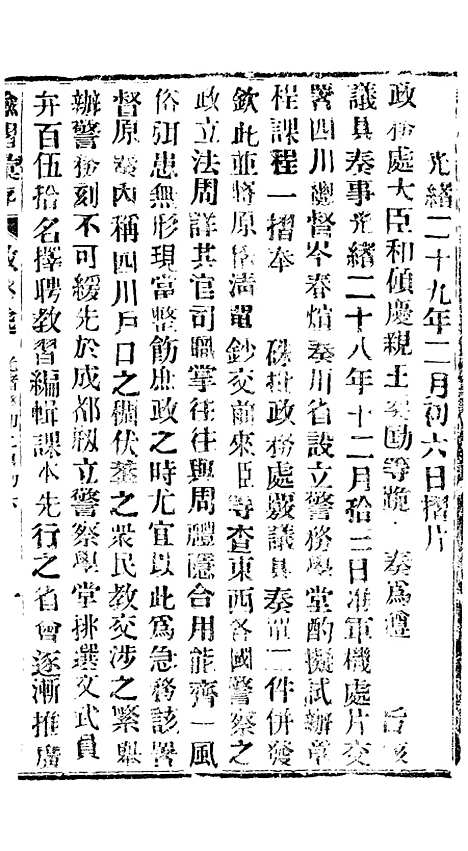 光緒二十九年二月初六日摺片
政務處大臣和碩慶親王奕劻等跪 奏爲遵 旨核
議具奏事光緒二十八年十二月拾三日准軍機處片交
署四川總督岑春煊奏川省設立警務學堂酌擬試辦章
程課程一摺奉 硃批政務處覈議具奏單二件併發
欽此並將原依清單鈔交前來臣等查東西各國警察之
政立法周詳其官司職掌往往與周禮隱合用能齊一風
俗弭患無形現當整飭庶政之時尤宜以此爲急務該署
督原奏內稱四川戶口之稠伏莽之衆民教交涉之緊舉
辦警務刻不可緩先於成都剏立警察學堂排選文武員
弁百伍拾名擇聘教習編輯課本先行之省會逐漸推廣